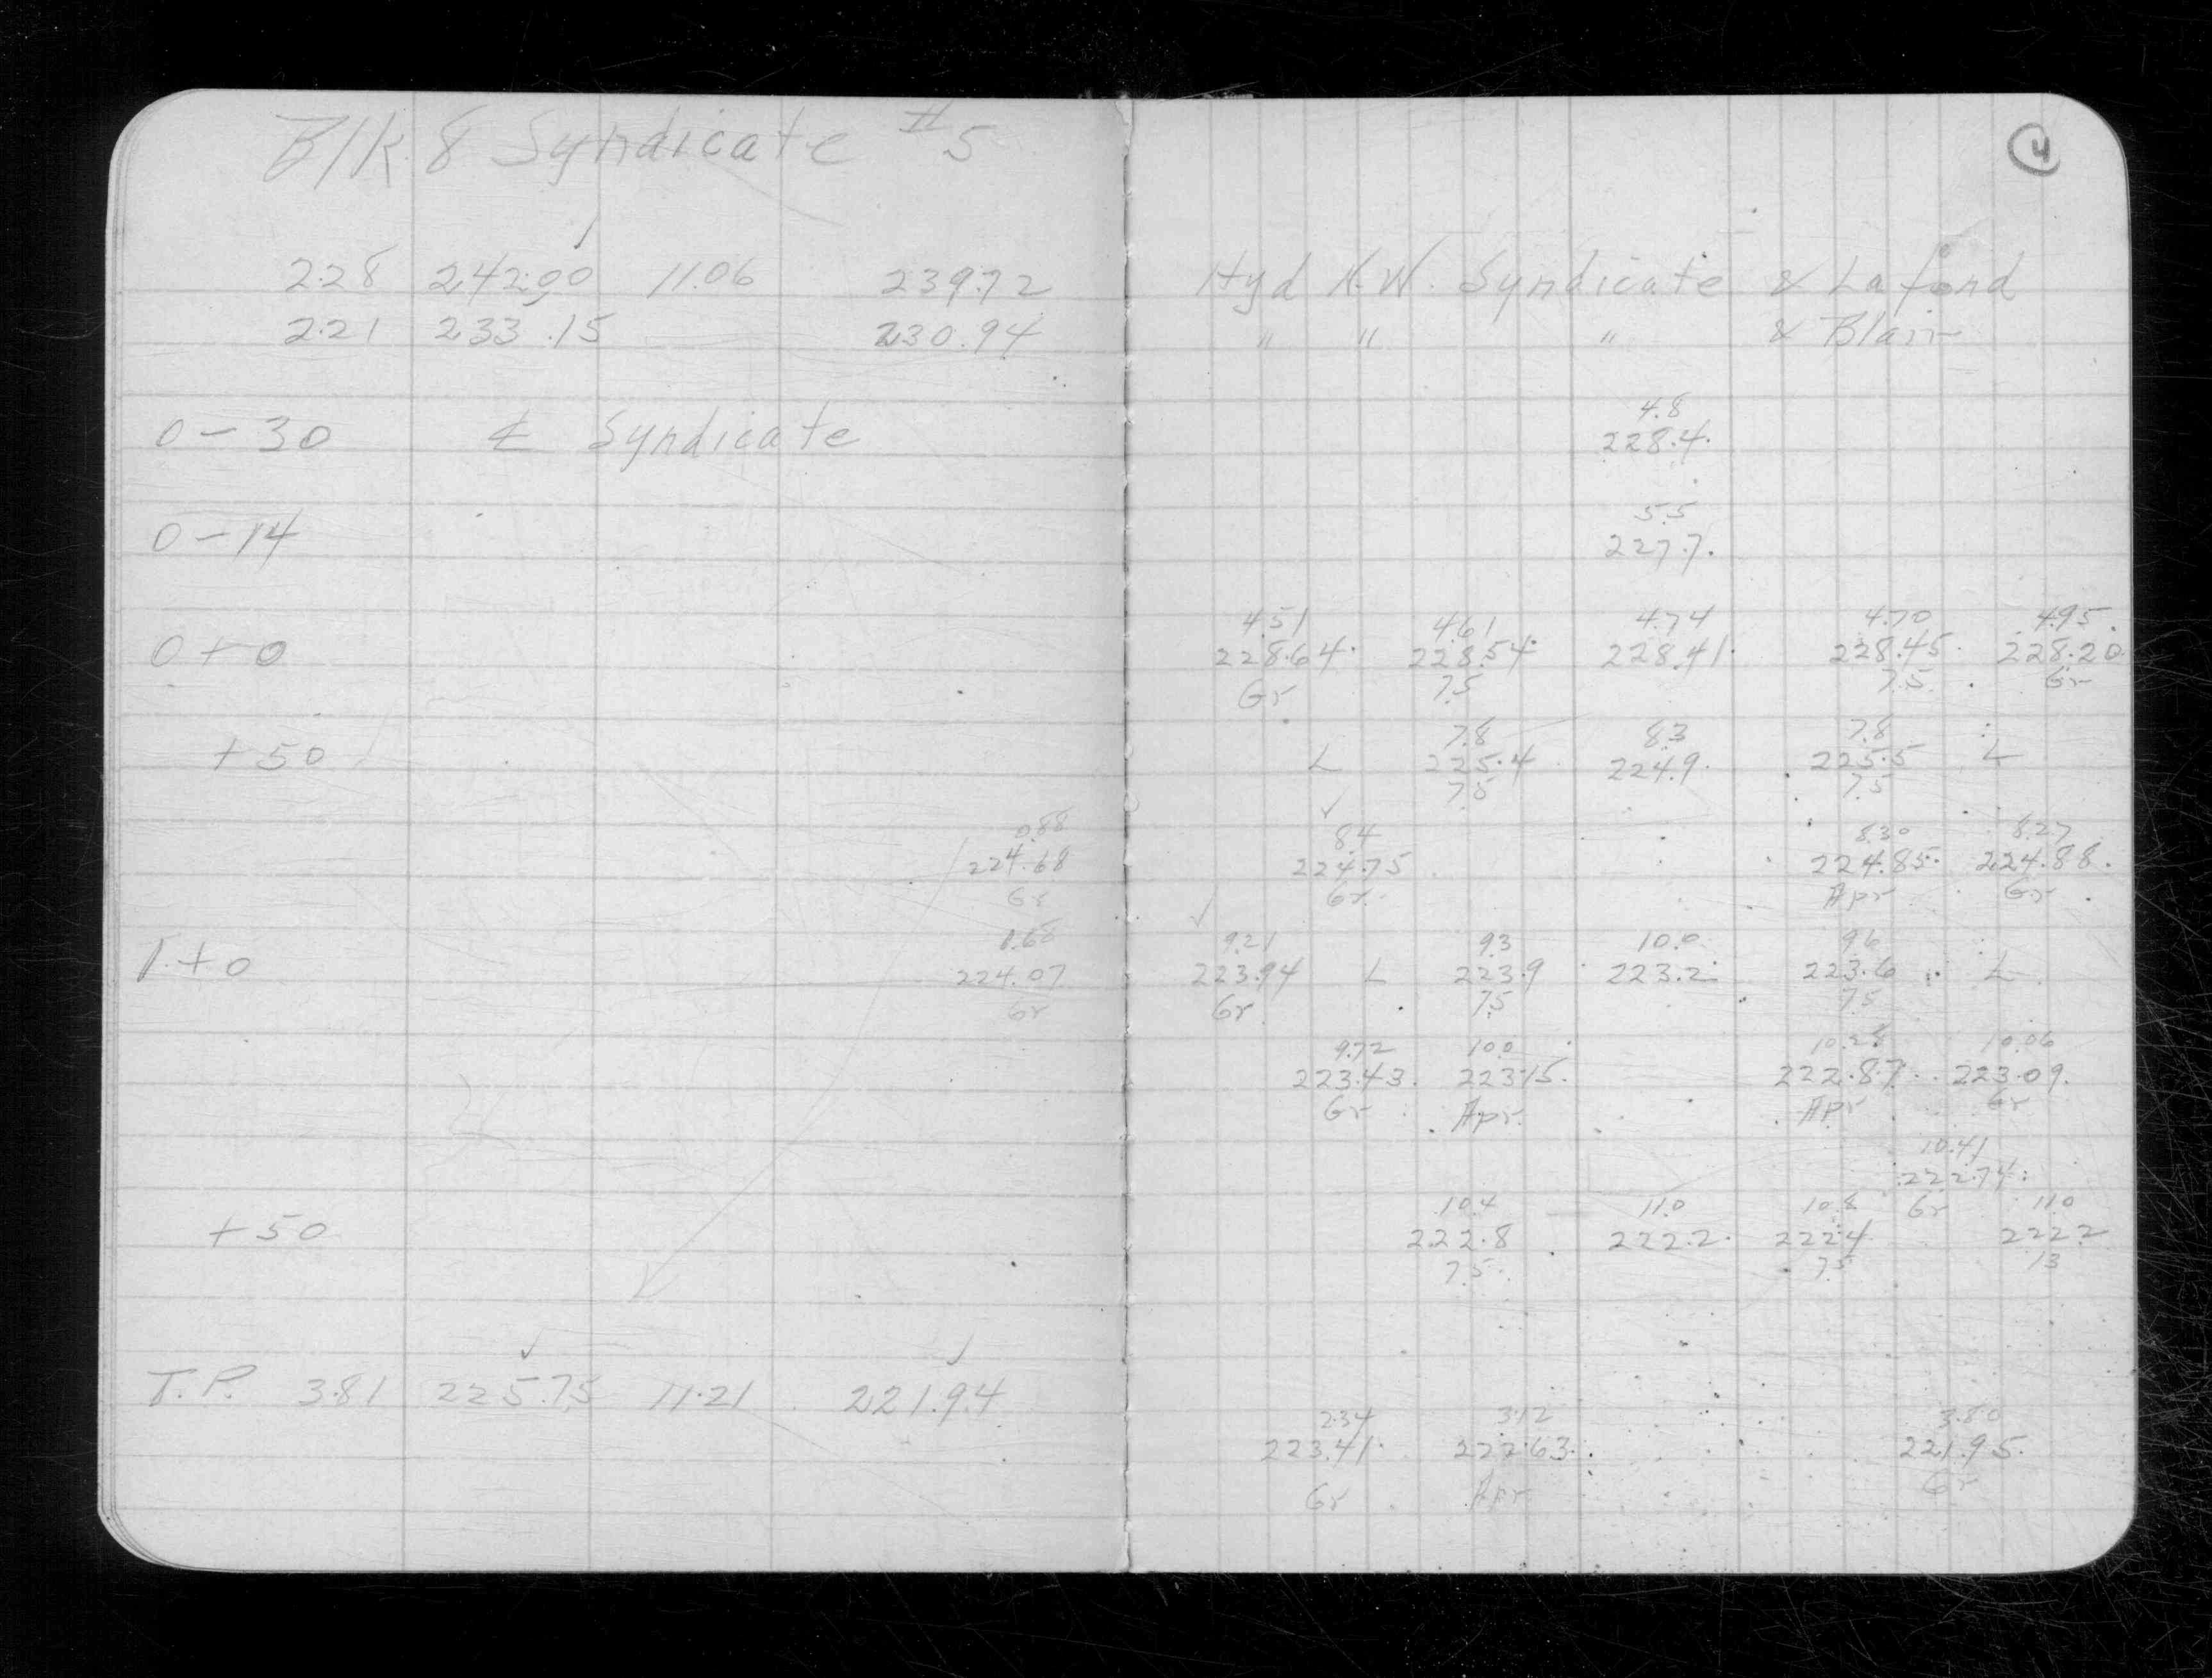 Blk 8 Syndicate #5
4
2.28 242.00 11.06 239.72
2.21 233.15 230.94
Hyd N.W. Syndicate & Lafond
" " " & Blair
4.8
0-30 ℄ Syndicate 228.4
5.5
0-14 227.7
4.51 4.61 4.74 4.70 4.95
0+0 228.64 228.54 228.41 228.45 228.20
Gr 7.5 7.5 Gr
7.8 8.3 7.8
+50 L 225.4 224.9 225.5 L
7.5 7.5
0.88 8.4 8.30 8.27
224.68 224.75 224.85 224.88
Gr Gr Apr Gr
1.68 9.21 9.3 10.0 9.6
1+0 224.07 223.94 L 223.9 223.2 223.6 L
Gr Gr 7.5 7.5
9.72 10.0 10.28 10.06
223.43 223.15 222.87 223.09
Gr Apr Apr Gr
10.41
222.74
10.4 11.0 10.8 Gr 11.0
+50 222.8 222.2 222.4 222.2
7.5 7.5 13
T.P. 3.81 225.75 11.21 221.94
2.34 3.12 3.80
223.41 222.63 221.95
Gr Apr Gr